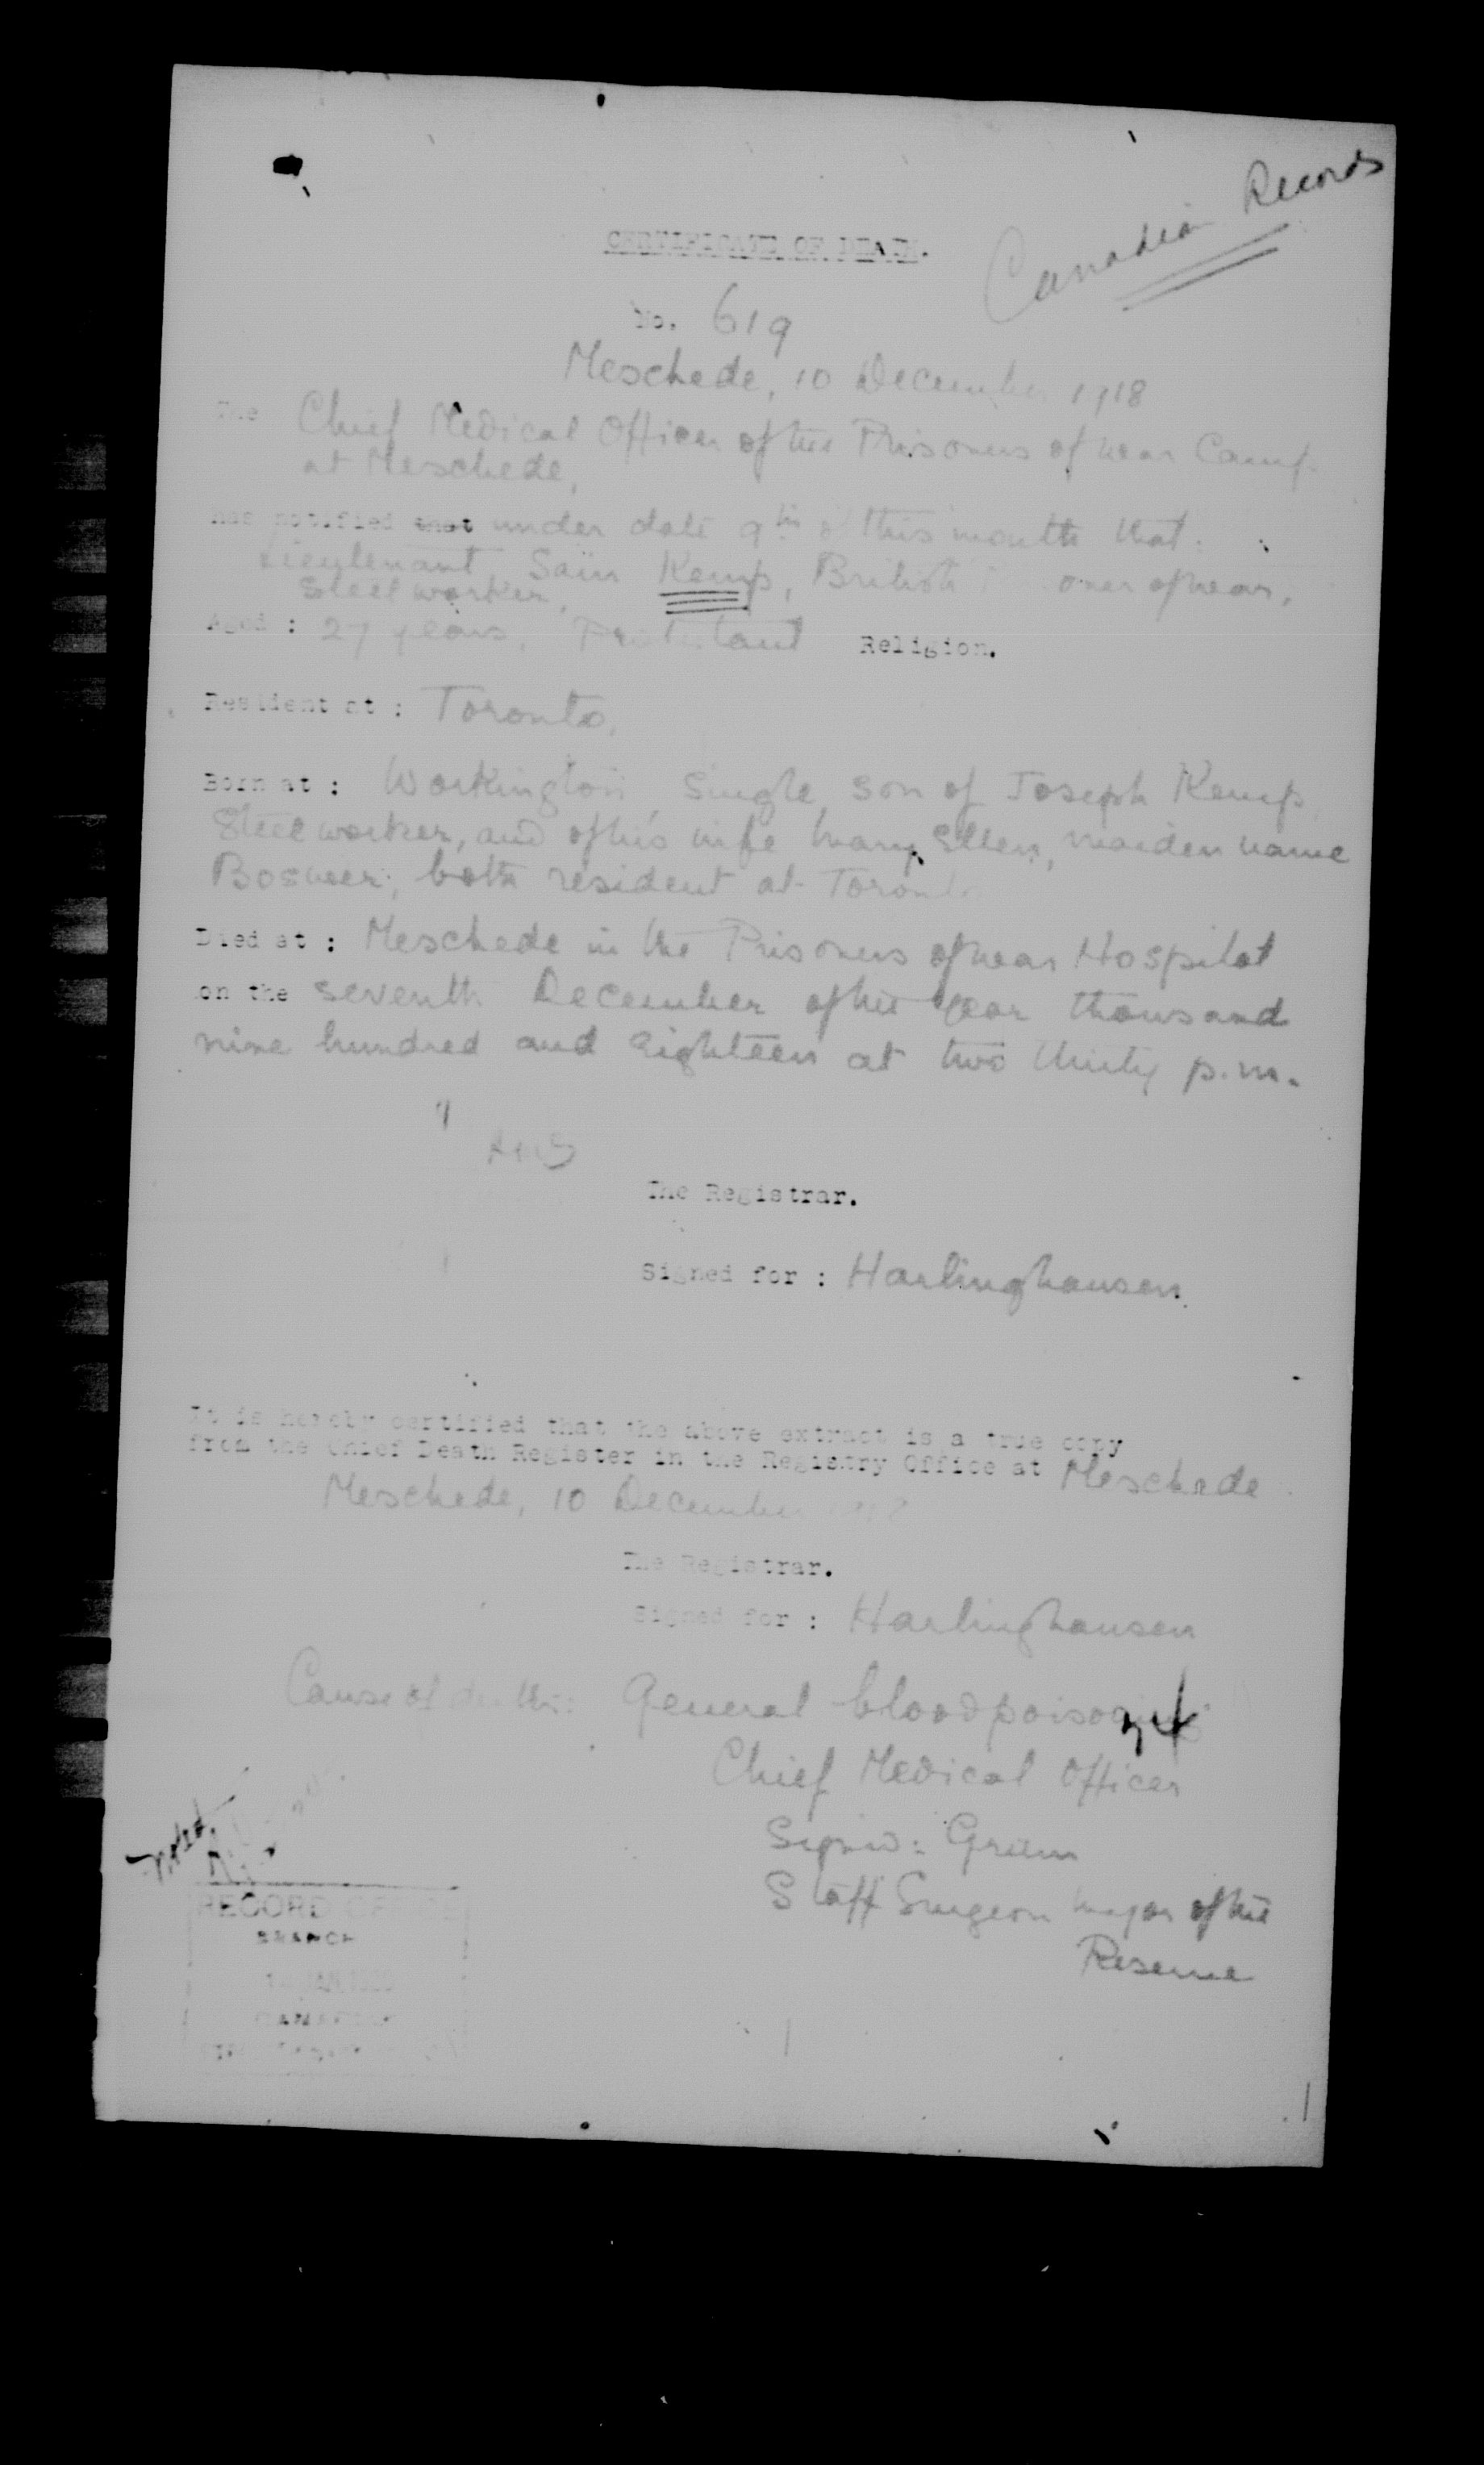 Canadian Records
CERTIFICATE OF DEATH.
No. 619
Meschede, 10 December 1918
The Chief Medical Officer of the Prisoners of war Camp
at Meschede,
has notified that under date 9th of this month that:
Lieutenant Sain Kemp, British oner of war,
Steelworker,
Aged : 27 years, Protestant Religion.
Resident at : Toronto,
Born at : Workington, Single, son of Joseph Kemp,
Steelworker, and of his wife Mary Ellen, maiden name
Bosweer, both resident at Toronto
Died at : Meschede in the Prisoners of war Hospital
on the seventh December of the year thousand
nine hundred and eighteen at two thirty p.m.
The Registrar.
Signed for : Harlinghausen
It is hereby certified that the above extract is a true copy
from the Chief Death Register in the Registry Office at Meschede
Meschede, 10 December 1918
The Registrar.
Signed for : Harlinghausen
Cause of death: General bloodpoisoning
Chief Medical Officer
Signed: Grüm
Staff Surgeon Major of the
Reserve
Noted
RECORD OFFICE
BRANCH